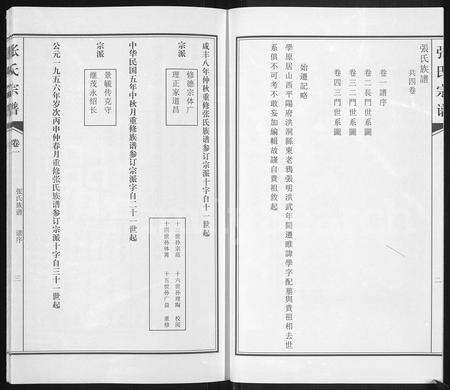 張氏宗譜
二
張氏族譜
共四卷
卷一譜序
卷二長門世系圖
卷三二門世系圖
卷四三門世系圖
始遷記略
學原居山西平陽府洪洞縣東老鴉張明洪武年間遷睢諱學字配葱與貴祖相去世
系俱不可考不敢妄加編輯故謹自貴祖敘起
咸丰八年仲秋重修张氏族谱参订宗派十字自十一世起
宗派
修德宗体广
理正家道昌
十三世孙宗起
十四世孙体菁
十六世孙理陶 校阅
十五世孙广益 重修
中华民国五年中秋月重修族谱参订宗派字自二十一世起
宗派
景毓传克守
继茂永绍长
公元一九五六年岁次丙申仲春月重修张氏族谱参订宗派十字自三十一世起
张氏宗谱
卷一
张氏族谱 谱序
三